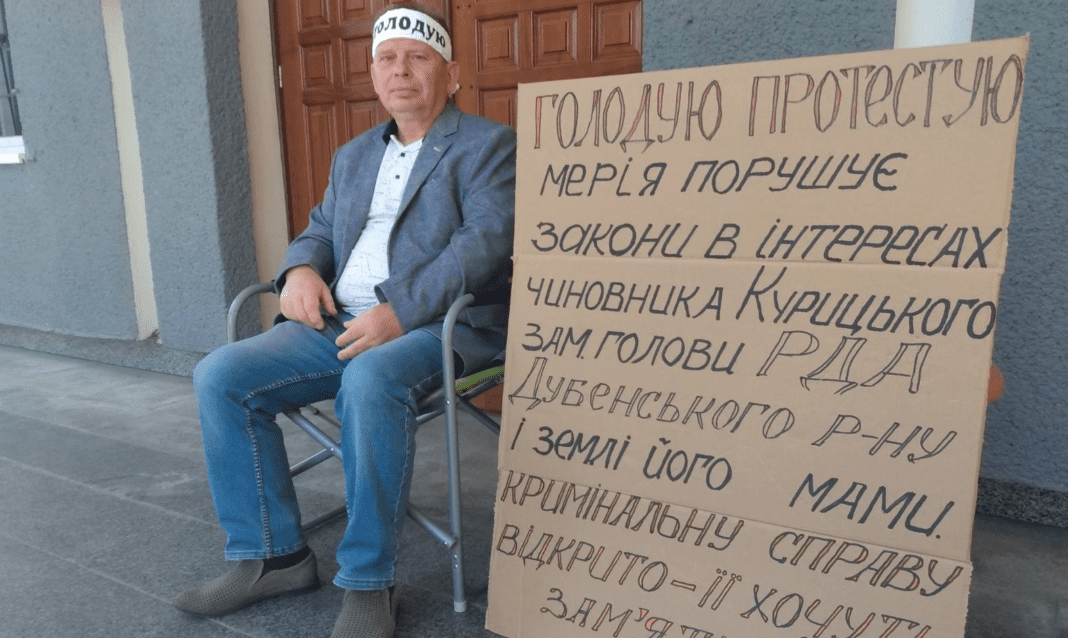 голодую
ГОЛОДУЮ ПРОТЕСТУЮ
МЕРІЯ ПОРУШУЄ
ЗАКОНИ В ІНТЕРЕСАХ
ЧИНОВНИКА КУРИЦЬКОГО
ЗАМ. ГОЛОВИ РДА
ДУБЕНСЬКОГО Р-НУ
І ЗЕМЛІ ЙОГО МАМИ.
КРИМІНАЛЬНУ СПРАВУ
ВІДКРИТО – ЇЇ ХОЧУТЬ